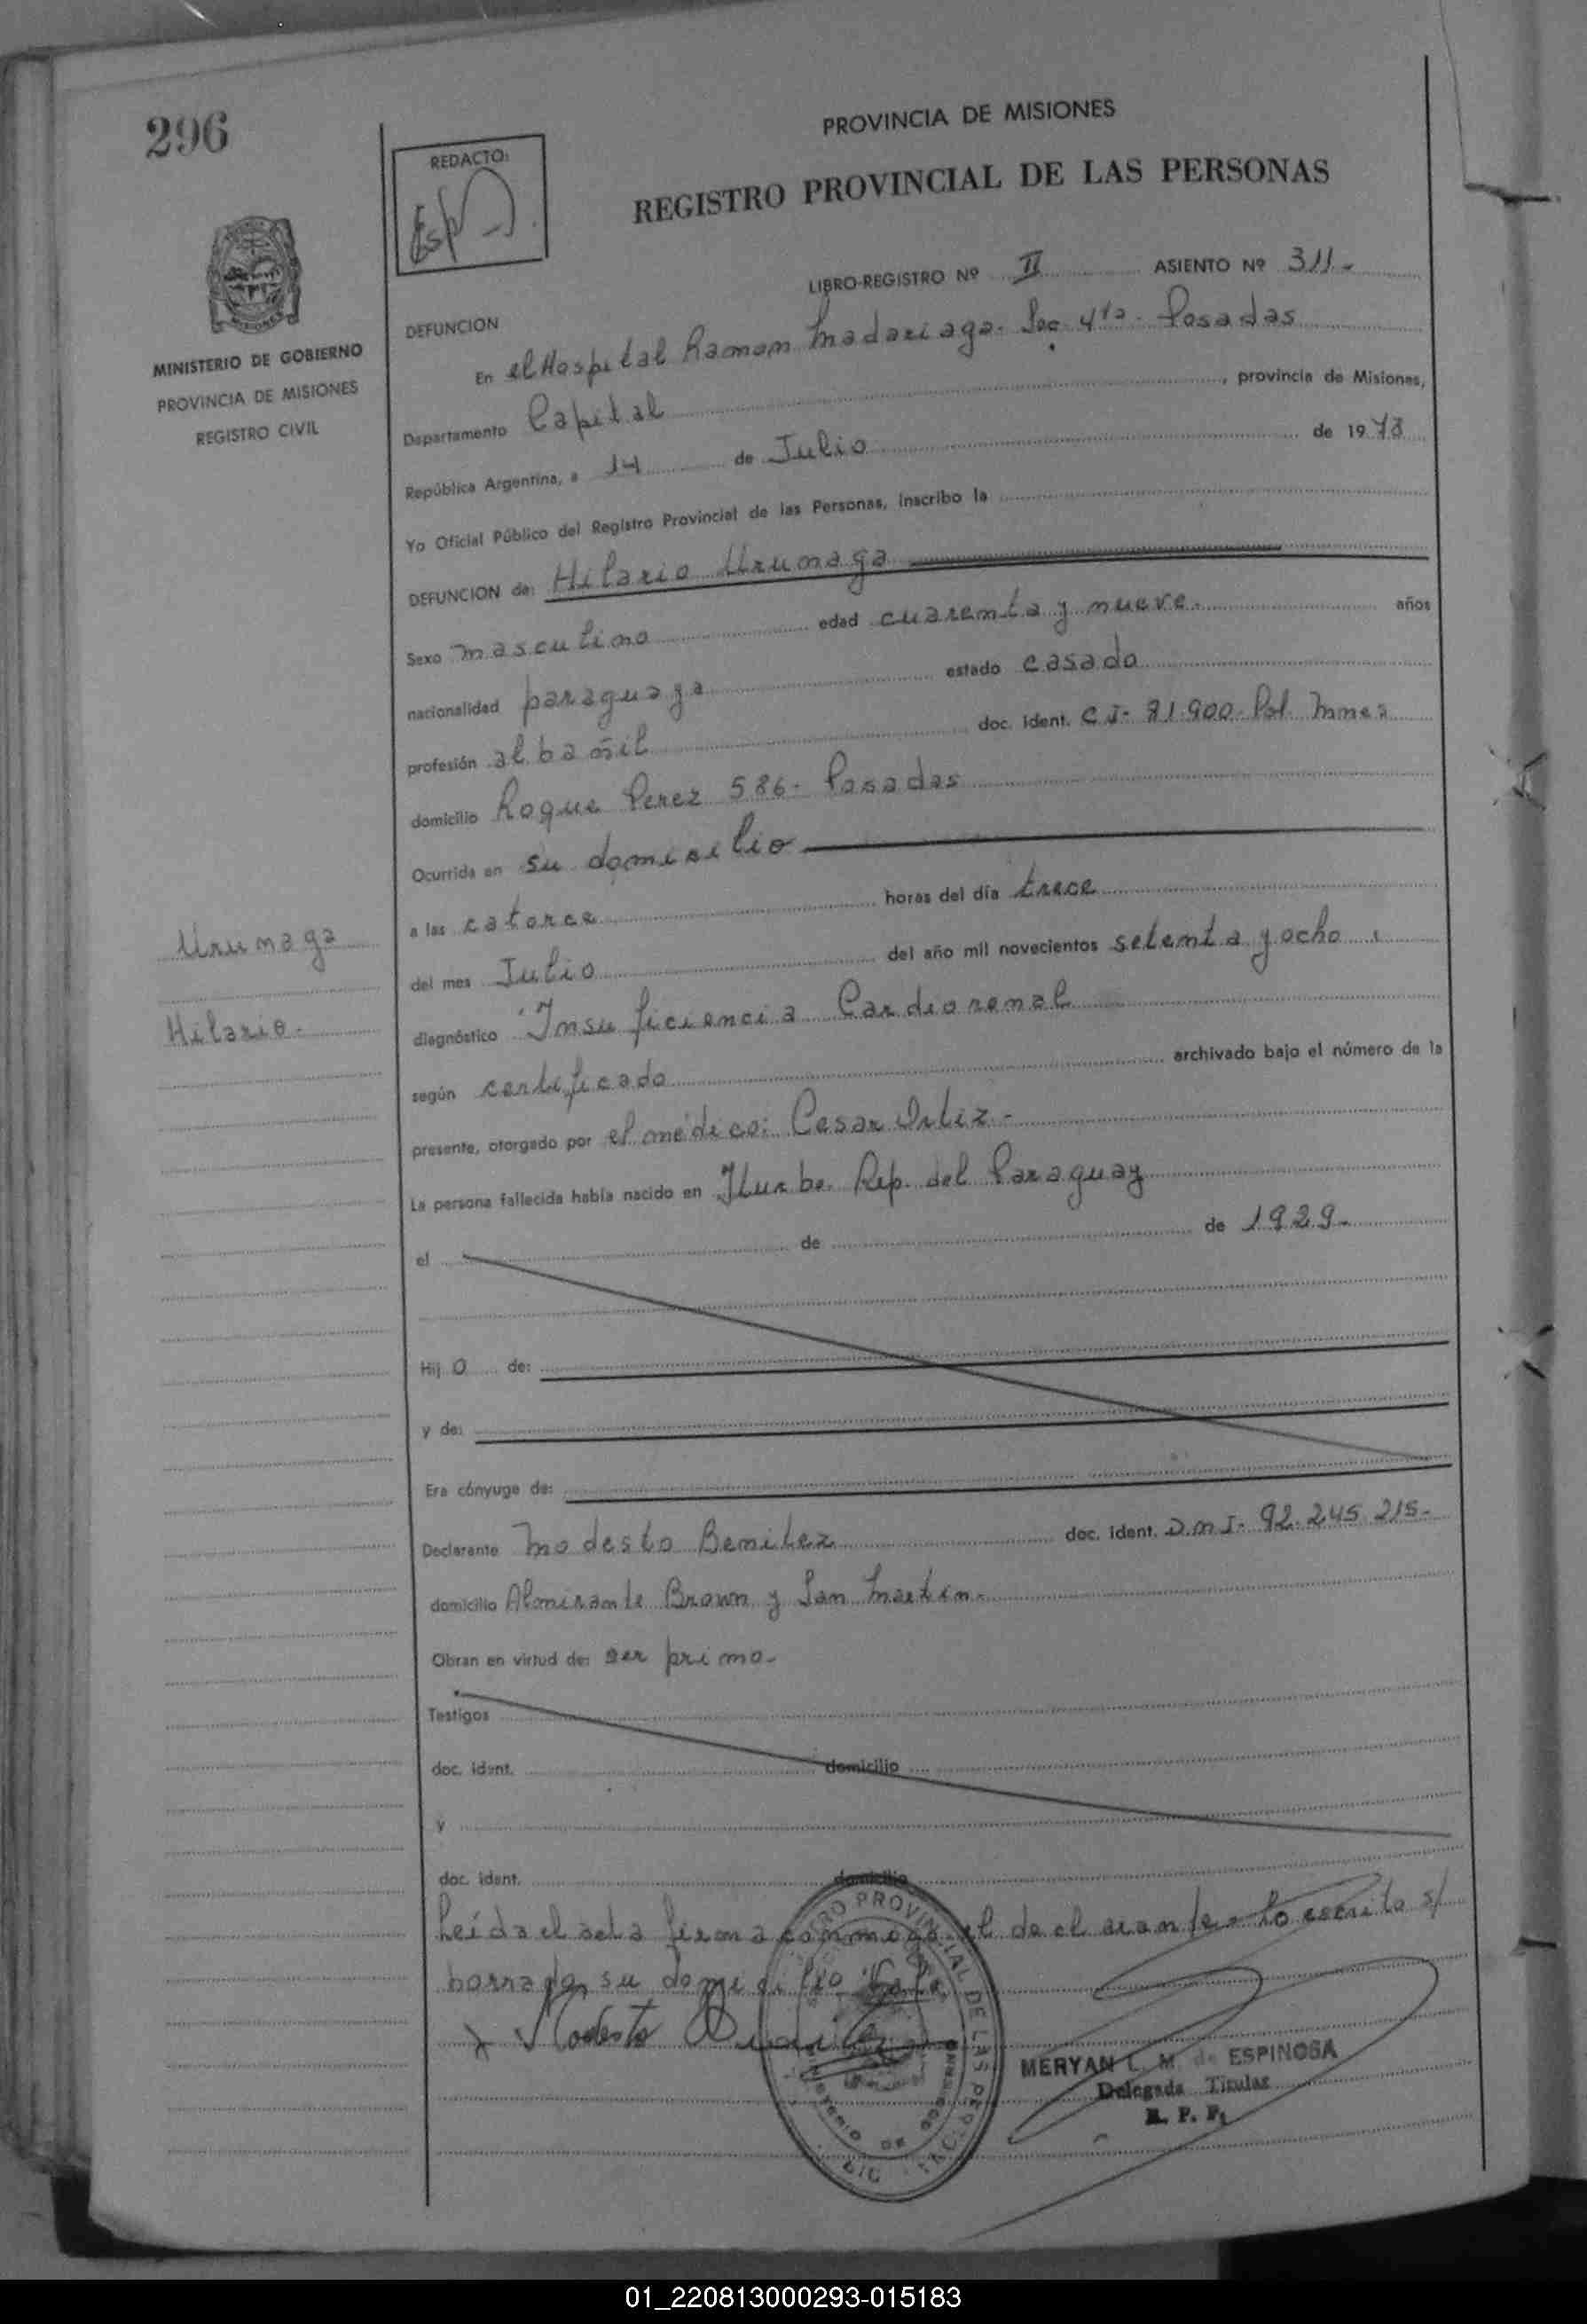 296
PROVINCIA DE MISIONES
REDACTO:
REGISTRO PROVINCIAL DE LAS PERSONAS
LIBRO-REGISTRO Nº II ASIENTO Nº 311-
MINISTERIO DE GOBIERNO
PROVINCIA DE MISIONES
REGISTRO CIVIL
DEFUNCION
En el Hospital Ramon Madariaga- Sec 4ta- Posadas
Departamento Capital, provincia de Misiones,
República Argentina, a 14 de Julio de 1978
Yo Oficial Público del Registro Provincial de las Personas, inscribo la
DEFUNCION de: Hilario Urunaga
Sexo masculino edad cuarenta y nueve- años
nacionalidad paraguaya estado casado
profesión albañil doc. ident. C I- 81.900- Pol. Mnes
domicilio Roque Perez 586- Posadas
Ocurrida en su domicilio
a las catorce horas del día trece
Urunaga
del mes Julio del año mil novecientos setenta y ocho
Hilario-
diagnóstico Insuficiencia Cardiorenal
según certificado archivado bajo el número de la
presente, otorgado por el médico: Cesar Ortiz-
La persona fallecida había nacido en Iturbe. Rep. del Paraguay
el de de 1929-
Hijo de:
y de:
Era cónyuge de:
Declarante Modesto Benitez doc. ident. D.N I- 92.245.215-
domicilio Almirante Brown y San Martin-
Obran en virtud de: ser primo-
Testigos
doc. ident. domicilio
y
doc. ident. domicilio
Leída el acta firma conmigo el declarante- Lo escrito s/
borrado su domicilio Vale
Modesto Benitez
MERYAN L. M. de ESPINOSA
Delegada Titular
R. P. P.
01_220813000293-015183